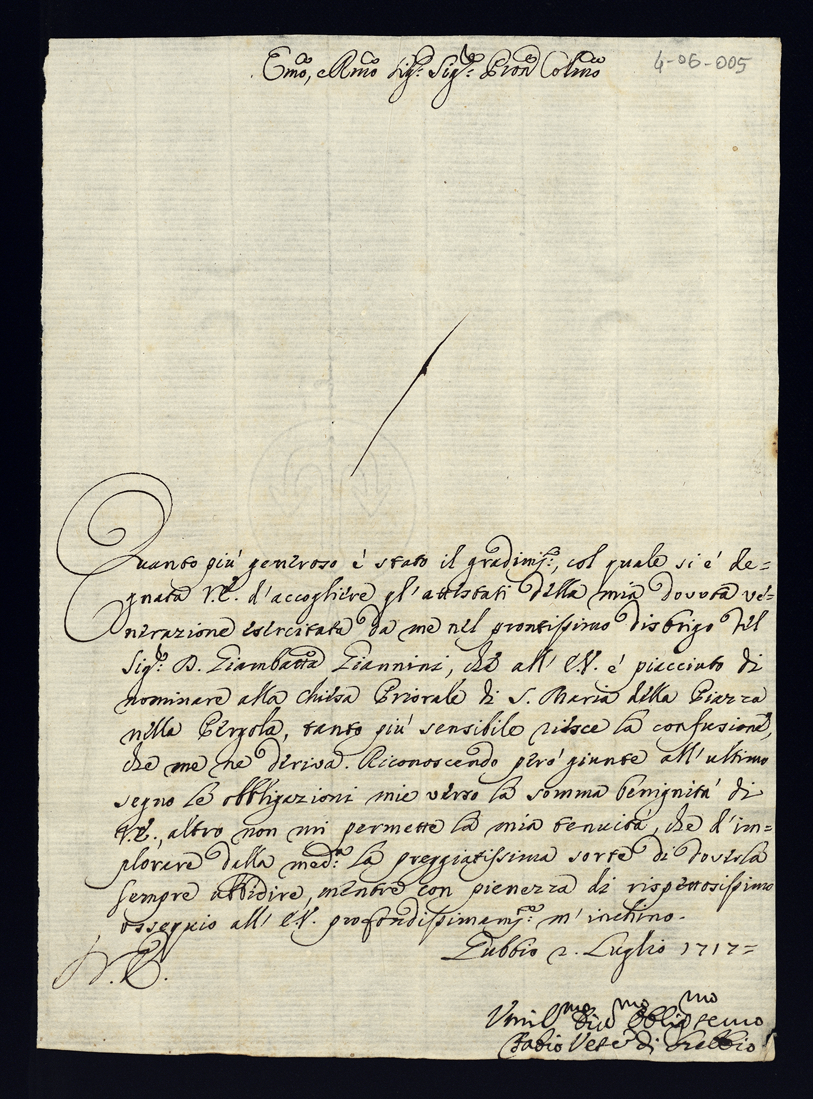 Emo, e Rmo Sig.r Sig.r Pron Colmo
4-06-005
Quanto più generoso è stato il gradim.to, col quale si è de=
gnata V.E. d'accogliere gl'attestati della mia dovuta ve=
nerazione esercitata da me nel prontissimo disbrigo del
Sig.r D. Giambatta Giannini, che all' E.V. è piacciuto di
nominare alla chiesa Priorale di S. Maria della Piazza
nella Pergola, tanto più sensibile riesce la confusione,
che me ne deriva. Riconoscendo però giunte all'ultimo
segno le obbligazioni mie verso la somma benignità di
V.E., altro non mi permette la mia tenuità, che d'im=
plorare dalla med.a la preggiatissima sorte di doverla
sempre ubbidire, mentre con pienezza di rispettosissimo
ossequio all' E.V. profondissimam.te m'inchino.
Gubbio 2. Luglio 1717=
V.E.
Umil.mo Div.mo Obblig.mo servo
Fabio Vesc.o di Gubbio